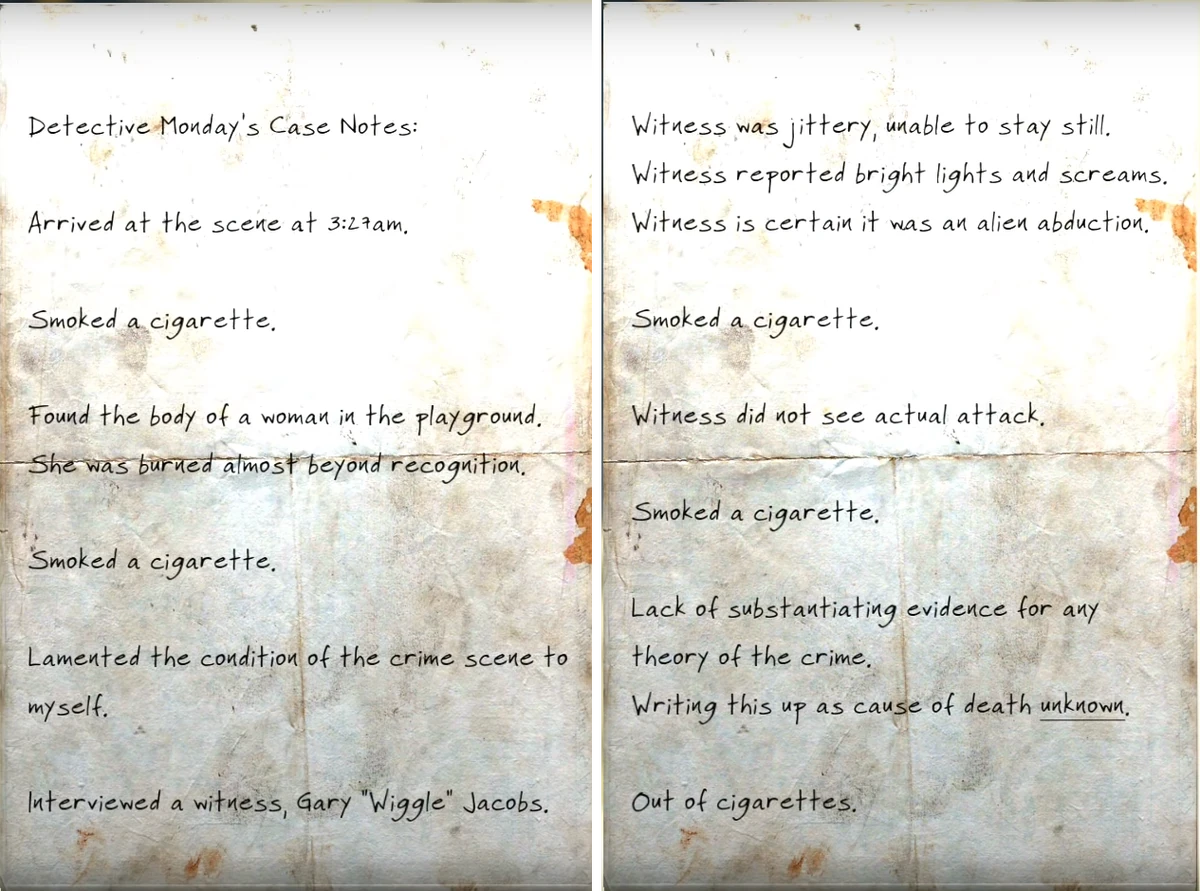 Detective Monday's Case Notes:
Arrived at the scene at 3:27am.
Smoked a cigarette.
Found the body of a woman in the playground.
She was burned almost beyond recognition.
Smoked a cigarette.
Lamented the condition of the crime scene to
myself.
Interviewed a witness, Gary "Wiggle" Jacobs.
Witness was jittery, unable to stay still.
Witness reported bright lights and screams.
Witness is certain it was an alien abduction.
Smoked a cigarette.
Witness did not see actual attack.
Smoked a cigarette.
Lack of substantiating evidence for any
theory of the crime.
Writing this up as cause of death unknown.
Out of cigarettes.